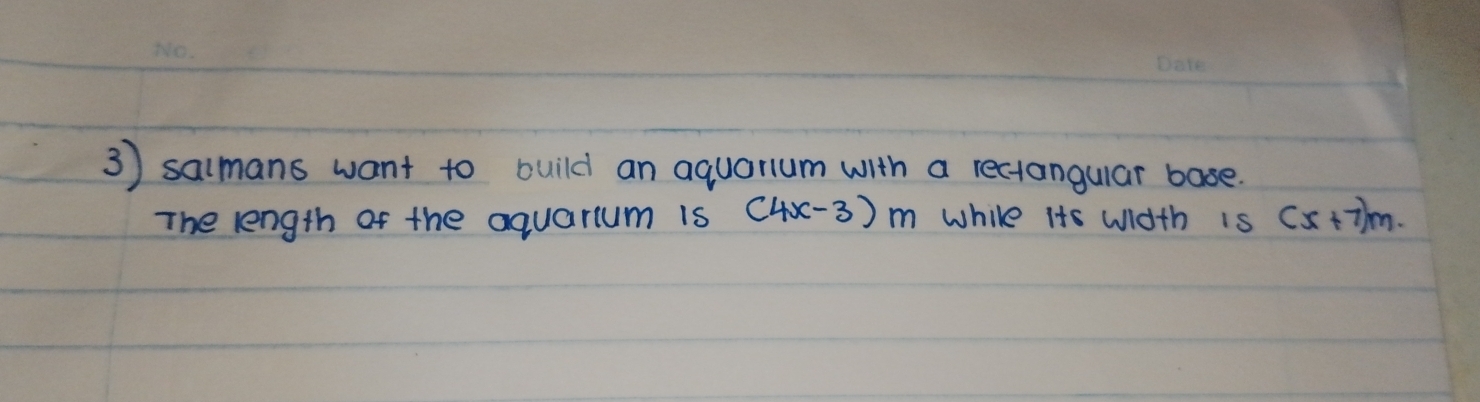 No.
Date
3) salmans want to build an aquarium with a rectangular base.
The length of the aquarium is (4x-3) m while its width is (x+7)m.